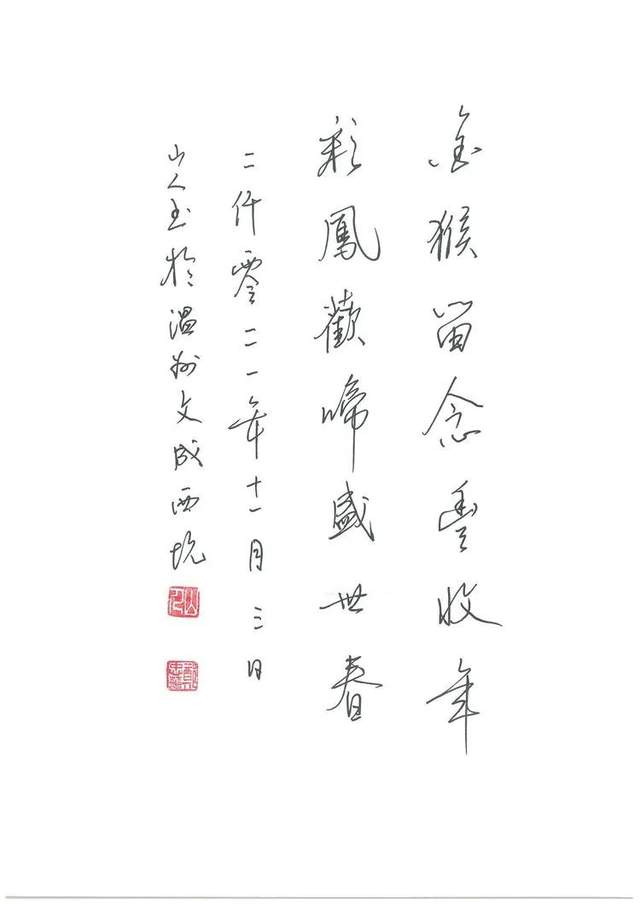 金猴留念豐收年
彩鳳歡啼盛世春
二仟零二一年十一月三日
山人玉於温州文成西坑
山人